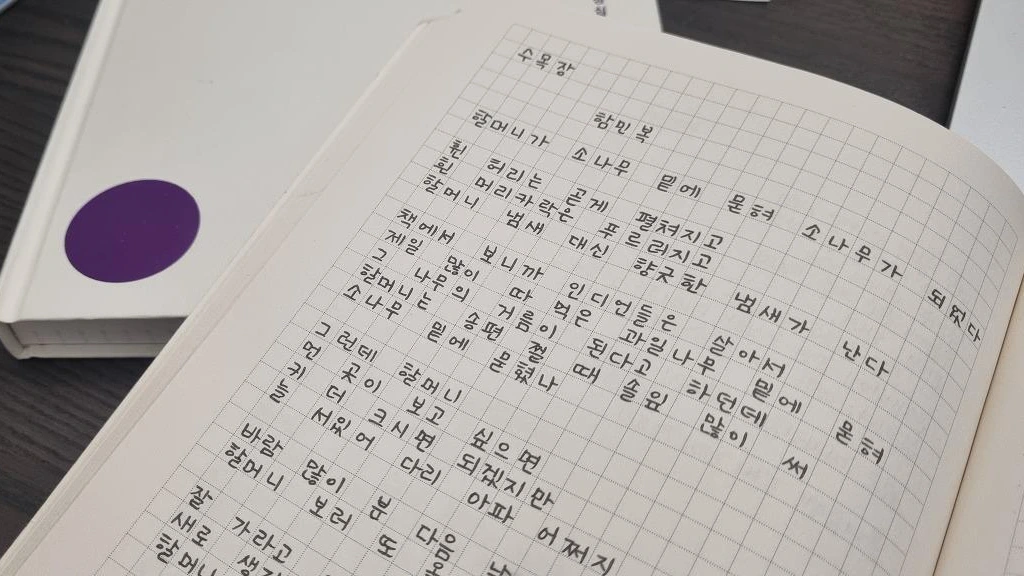 수목장
함민복
할머니가 소나무 밑에 묻혀 소나무가 되었다
휜 허리는 곧게 펼쳐지고
흰 머리카락은 푸르러지고
할머니 냄새 대신 향긋한 냄새가 난다
책에서 보니까 인디언들은 살아서
제일 많이 따 먹은 과일나무 밑에 묻혀
그 나무의 거름이 된다고 하던데
할머니는 송편 찔 때 솔잎 많이 써
소나무 밑에 묻혔나
그런데 할머니
먼 곳이 보고 싶으면
키 더 크시면 되겠지만
늘 서있어 다리 아파 어쩌지
바람 많이 분 다음
할머니 보러 또
잘 가라고
새로
할머니